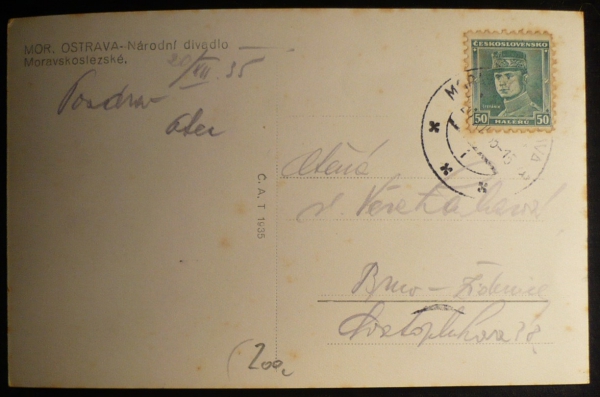 MOR. OSTRAVA-Národní divadlo
Moravskoslezské.
20/XII. 35
Pozdrav
Otec
C. A. T 1935
ČESKOSLOVENSKO
50 HALÉŘŮ 50
Ctěná
Věra
Brno - Židenice
Svatoplukova
200,